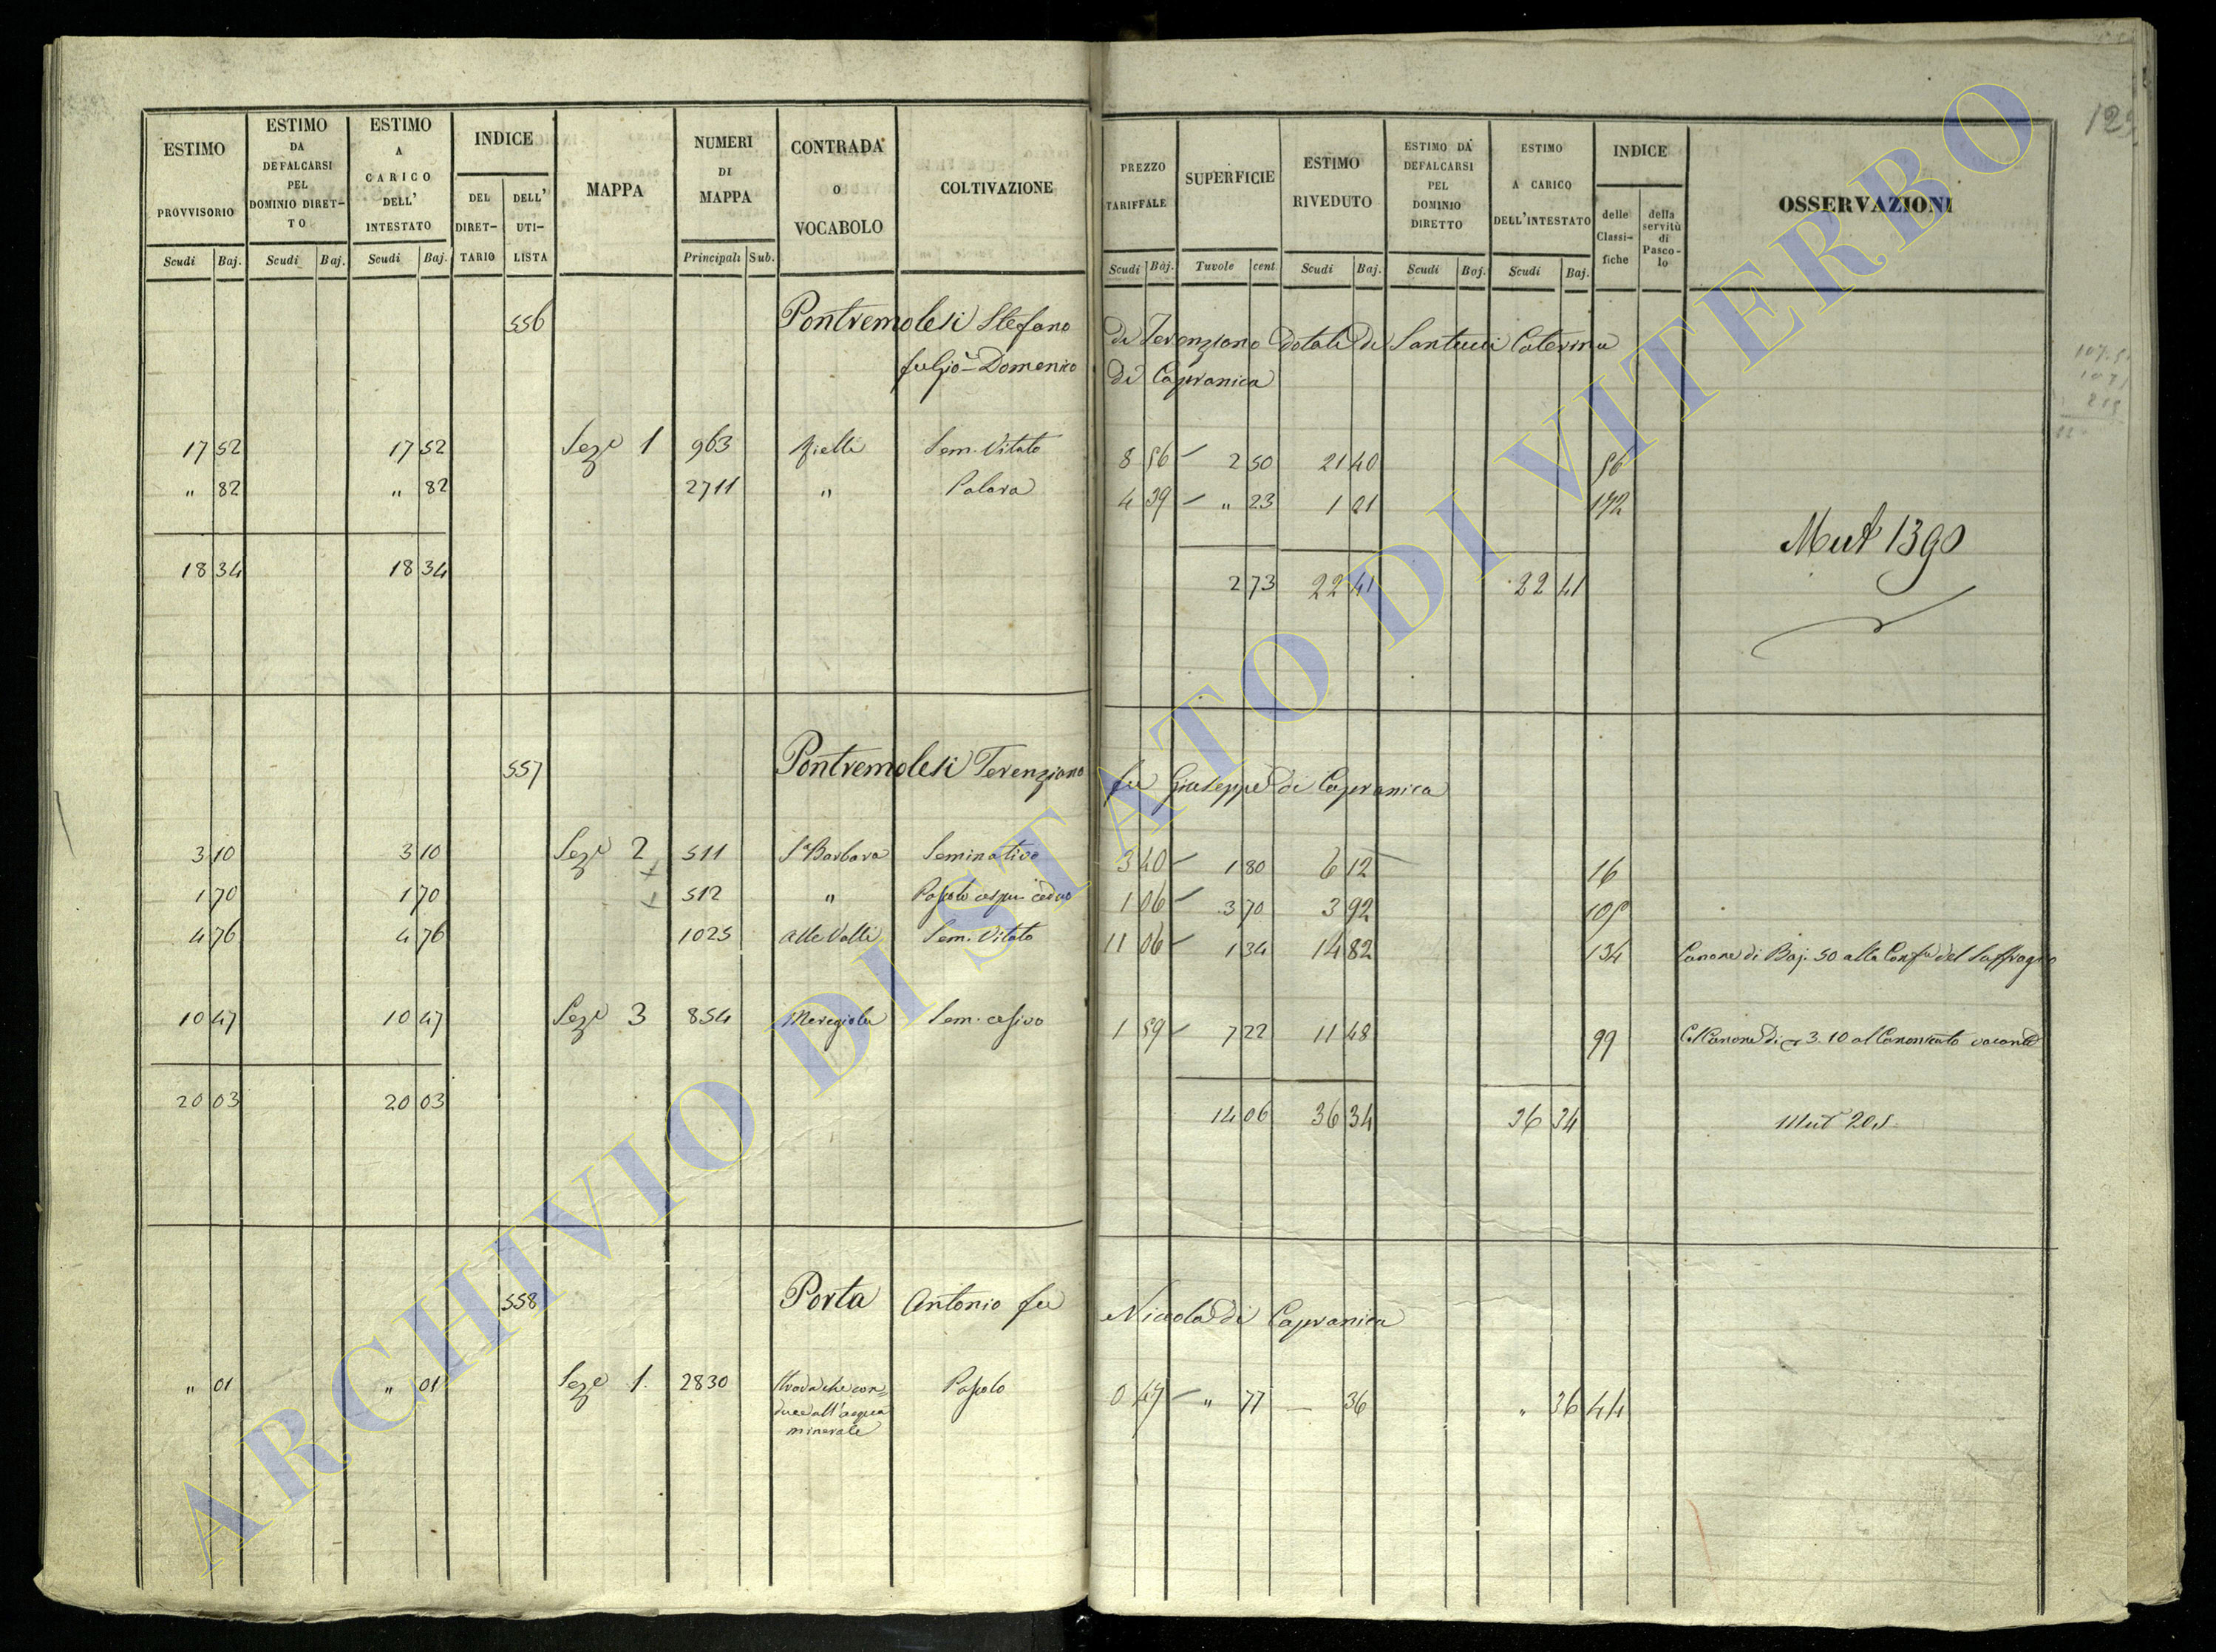 ESTIMO PROVVISORIO
ESTIMO DA DEFALCARSI PEL DOMINIO DIRET- TO
ESTIMO A CARICO DELL' INTESTATO
INDICE
DEL DIRET- TARIO
DELL' UTI- LISTA
MAPPA
NUMERI DI MAPPA
CONTRADA O VOCABOLO
COLTIVAZIONE
PREZZO TARIFFALE
SUPERFICIE
ESTIMO RIVEDUTO
ESTIMO DA DEFALCARSI PEL DOMINIO DIRETTO
ESTIMO A CARICO DELL'INTESTATO
INDICE
delle Classi- fiche
della servitù di Pasco- lo
OSSERVAZIONI
Scudi Baj. Scudi Baj. Scudi Baj. Principali Sub. Scudi Baj. Tavole cent. Scudi Baj. Scudi Baj. Scudi Baj.
556 Pontremolesi Stefano di Terenziano dotali di Santucci Caterina
Domenico di Capranica
17 52 17 52 Seze 1 963 Sem. Vitato 8 56 2 50 21 40 56
" 82 " 82 2711 " 4 39 " 23 1 01 142
Mut 1390
18 34 18 34 2 73 22 41 22 41
557 Pontremolesi Terenziano fu Giuseppe di Capranica
3 10 3 10 Seze 2 511 Sa Barbara Seminativo 3 40 1 80 6 12 16
1 70 1 70 512 " Pascolo cespu. ceduo 1 06 3 70 3 92 105
4 76 4 76 1025 alle Valli Sem. Vitato 11 06 1 34 14 82 134 Canone di Baj. 50 alla Confa del Suffragio
10 47 10 47 Seze 3 854 1 59 7 22 11 48 99 Canone di 3.10 al Canonicato vacante
20 03 20 03 14 06 36 34 36 34 Mut 205
558 Porta Antonio fu Nicola di Capranica
" 01 " 01 Seze 1. 2830 Strada che con= Pascolo 0 47 " 77 — 36 " 36 44
duce all'acqua
minerale
ARCHIVIO DI STATO DI VITERBO